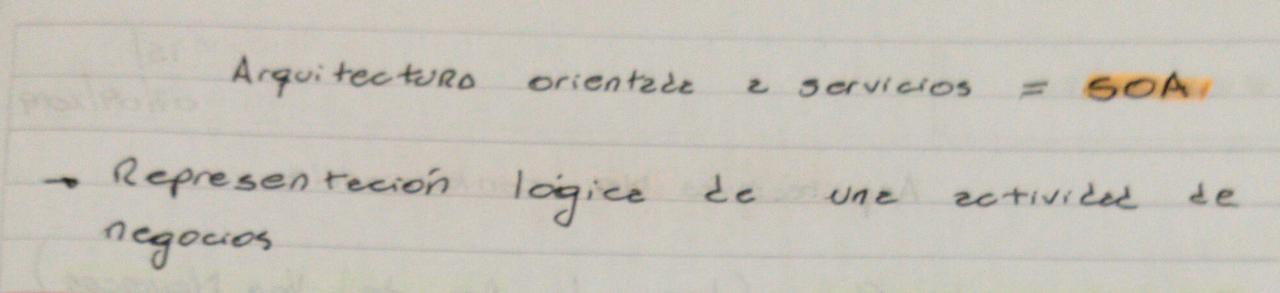 Arquitectura orientada a servicios = SOA
→ Representación lógica de una actividad de
negocios